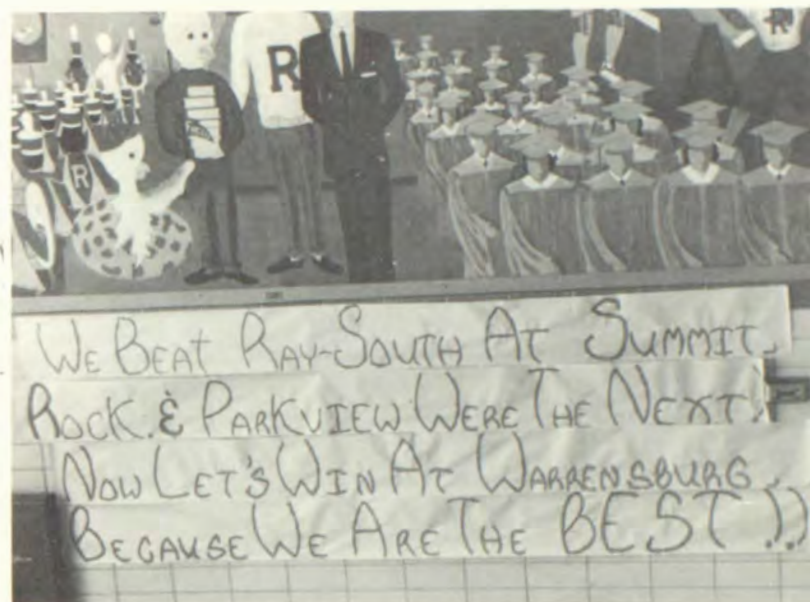 R
R
R
We Beat Ray-South At Summit,
Rock. & Parkview Were The Next.
Now Let's Win At Warrensburg,
Because We Are The BEST!!